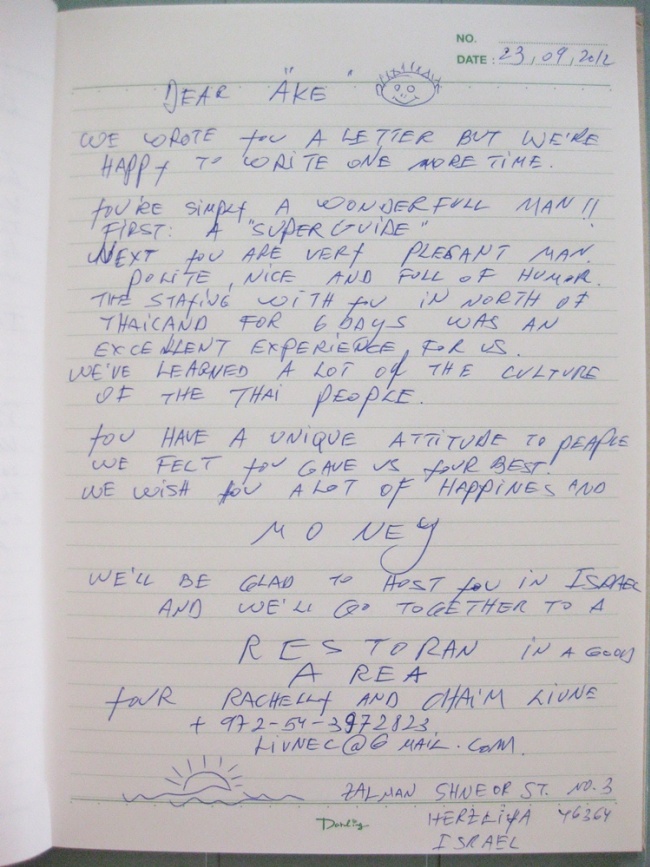 NO.
DATE : 23, 09, 2012
DEAR "ÄKE"
WE WROTE YOU A LETTER BUT WE'RE
HAPPY TO WRITE ONE MORE TIME.
YOU'RE SIMPLY A WONDERFULL MAN!!
FIRST: A "SUPER GUIDE"
NEXT YOU ARE VERY PLESANT MAN.
POLITE, NICE AND FULL OF HUMOR.
THE STAYING WITH YOU IN NORTH OF
THAILAND FOR 6 DAYS WAS AN
EXCELLENT EXPERIENCE FOR US.
WE'VE LEARNED A LOT OF THE CULTURE
OF THE THAI PEOPLE.
YOU HAVE A UNIQUE ATTITUDE TO PEAPLE
WE FELT YOU GAVE US YOUR BEST.
WE WISH YOU A LOT OF HAPPINES AND
MONEY
WE'LL BE GLAD TO HOST YOU IN ISRAEL
AND WE'LL GO TOGETHER TO A
RESTORAN IN A GOOD
AREA
YOUR RACHELLY AND CHAIM LIVNE
+972-54-3972823
LIVNEC@GMAIL.COM.
ZALMAN SHNEOR ST. NO. 3
Donlig
HERZLIYA 46364
ISRAEL